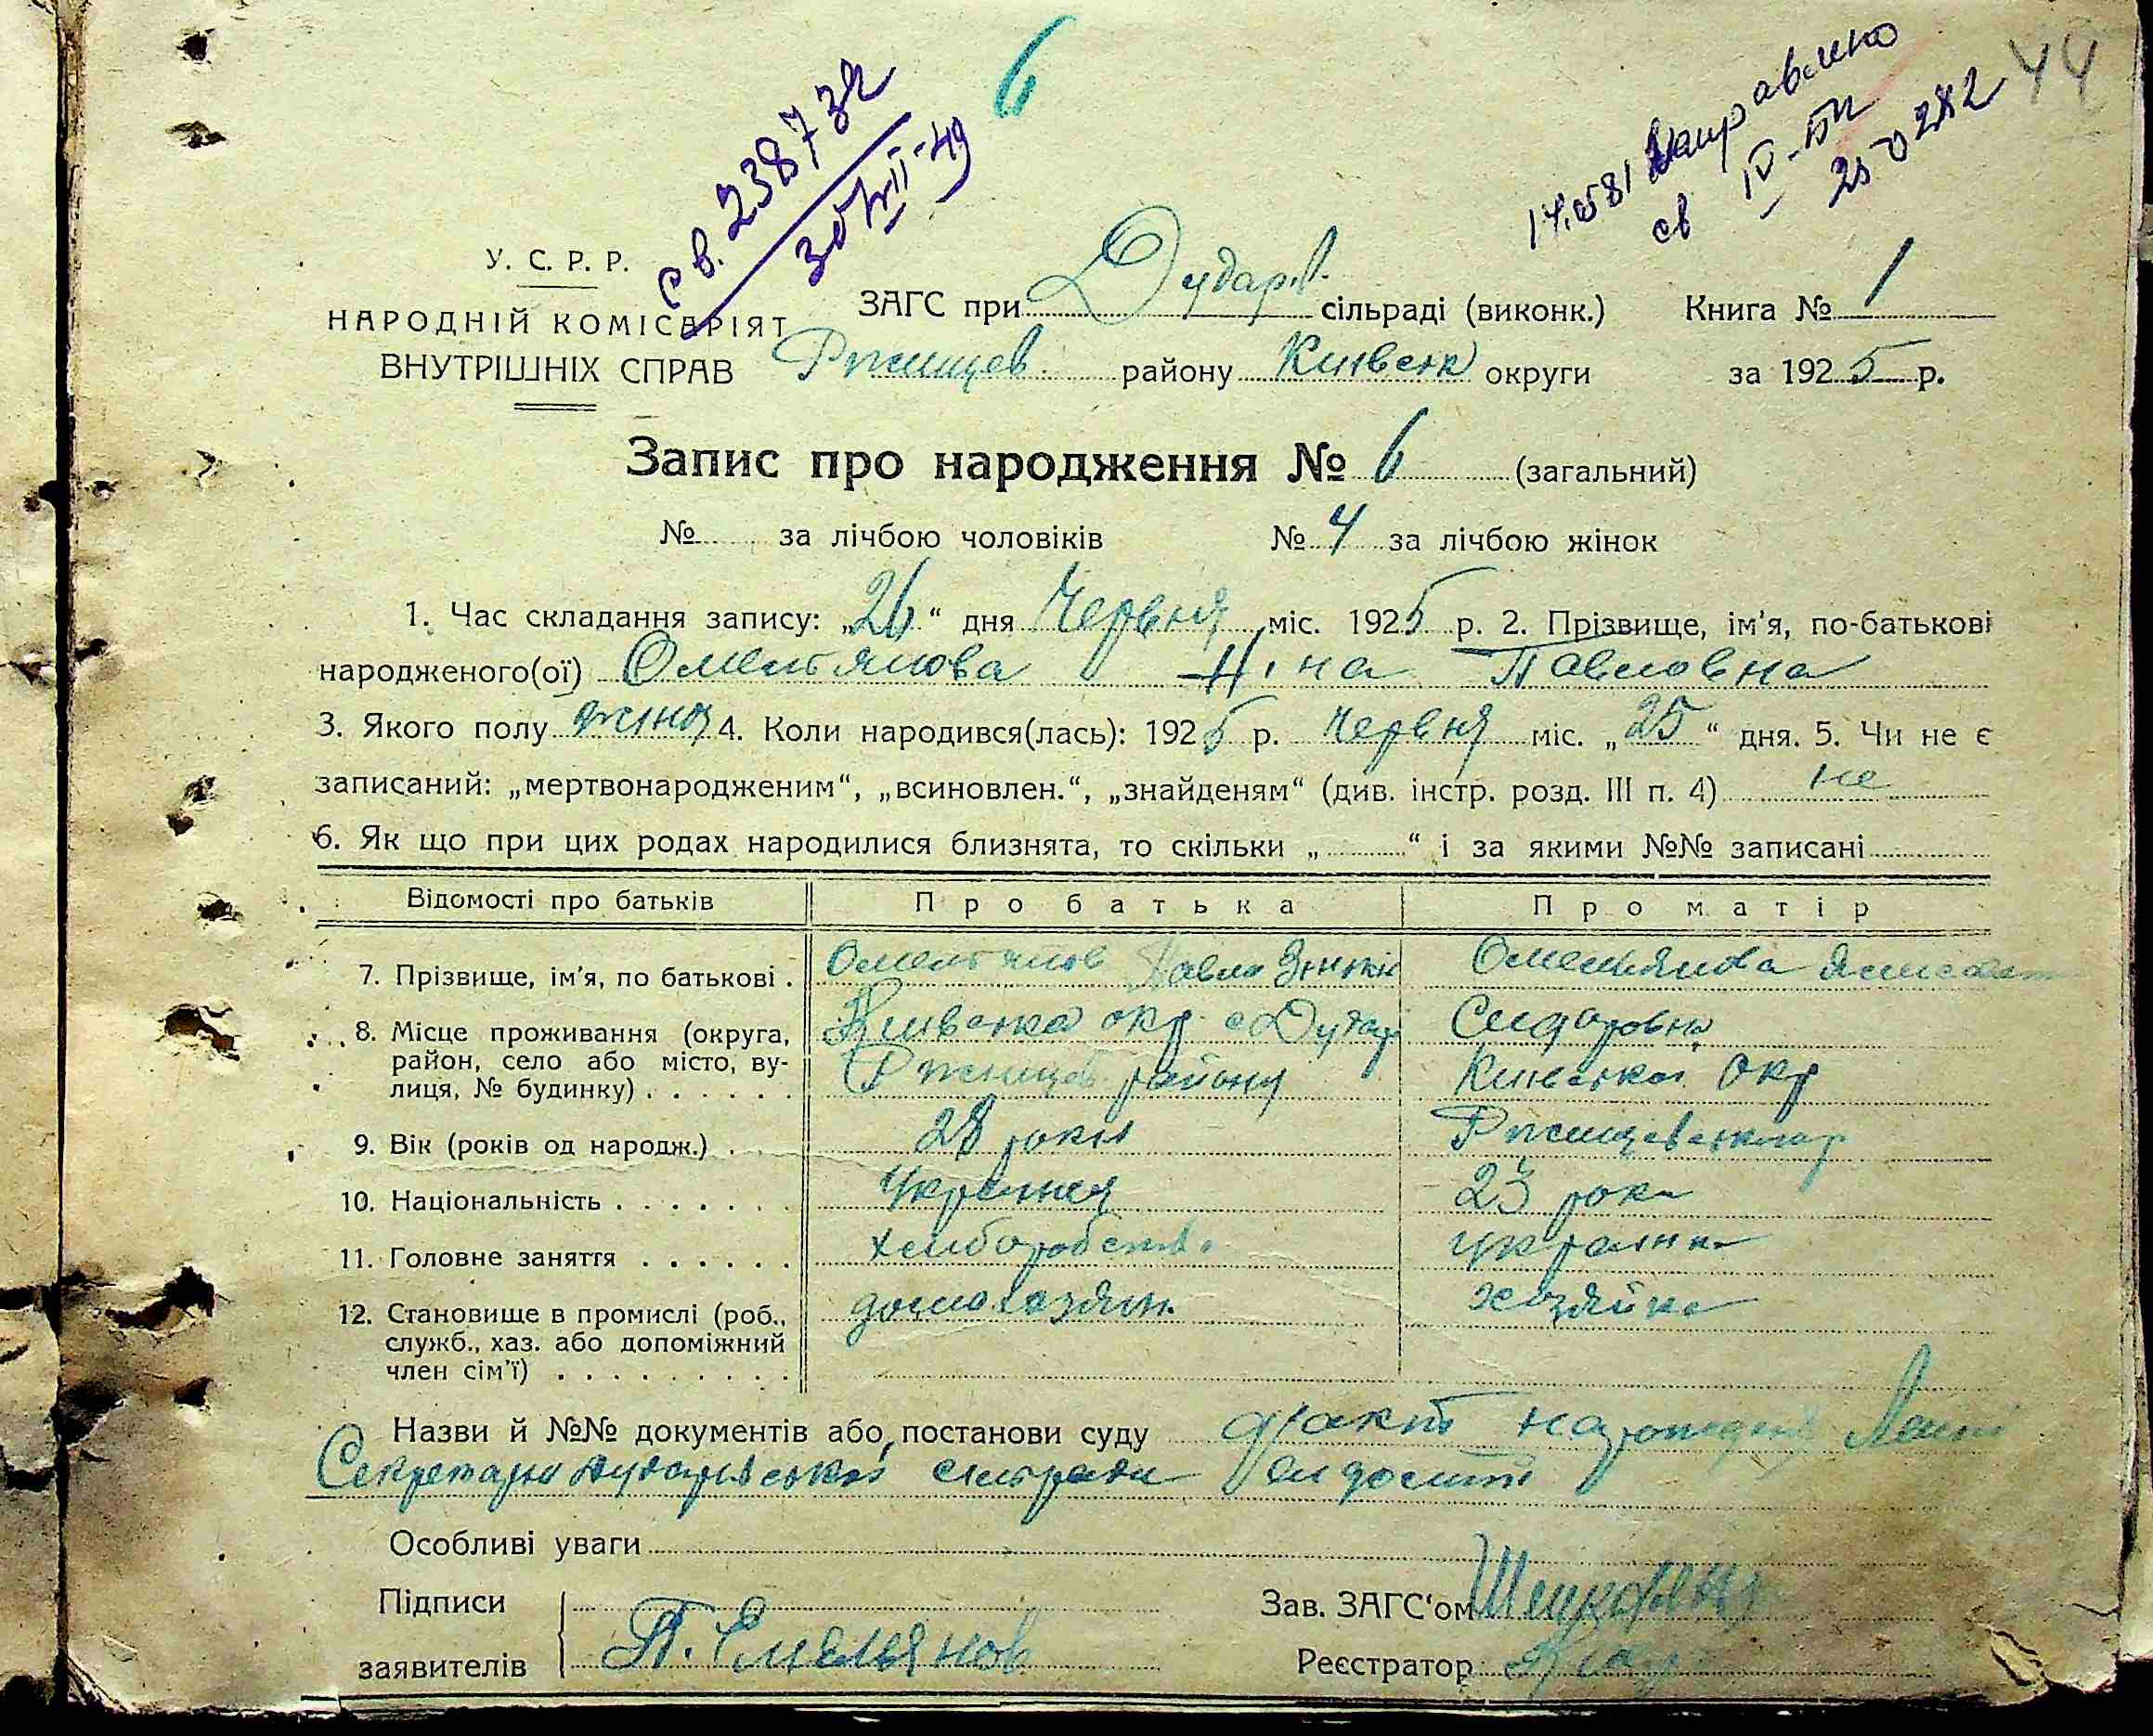 6
44
св. 238732
30/VII-49
св IV-БП
У. С. Р. Р.
НАРОДНІЙ КОМІСАРІЯТ
ВНУТРІШНІХ СПРАВ
ЗАГС при Дударів. сільраді (виконк.) Книга № 1
Ржищев району Київськ округи за 1925 р.
Запис про народження № 6 (загальний)
№ за лічбою чоловіків № 4 за лічбою жінок
1. Час складання запису: „26“ дня Червня міс. 1925 р. 2. Прізвище, ім’я, по-батькові
народженого(ої) Омельянова Ніна Павловна
3. Якого полу жіноч 4. Коли народився(лась): 1925 р. Червня міс. „25“ дня. 5. Чи не є
записаний: „мертвонародженим“, „всиновлен.“, „знайденям“ (див. інстр. розд. III п. 4) не
6. Як що при цих родах народилися близнята, то скільки „ “ і за якими №№ записані
Відомості про батьків Про батька Про матір
7. Прізвище, ім’я, по батькові . Омельянов Павло Омельянова
8. Місце проживання (округа, Київська окр. с Дудар Сидоровна
район, село або місто, ву- Ржищев району Київської Окр
лиця, № будинку) . . . . . .
9. Вік (років од народж.) . 28 років
10. Національність . . . . . . . Українец 23 роки
11. Головне заняття . . . . . . хлиборобств. українка
12. Становище в промислі (роб., домохозяин. хозяйка
служб., хаз. або допоміжний
член сім’ї) . . . . . . . . .
Назви й №№ документів або постанови суду факт народження
Секретарю Дударівської сільради
Особливі уваги
Підписи Зав. ЗАГС‘ом
заявителів П. Емельянов Реєстратор